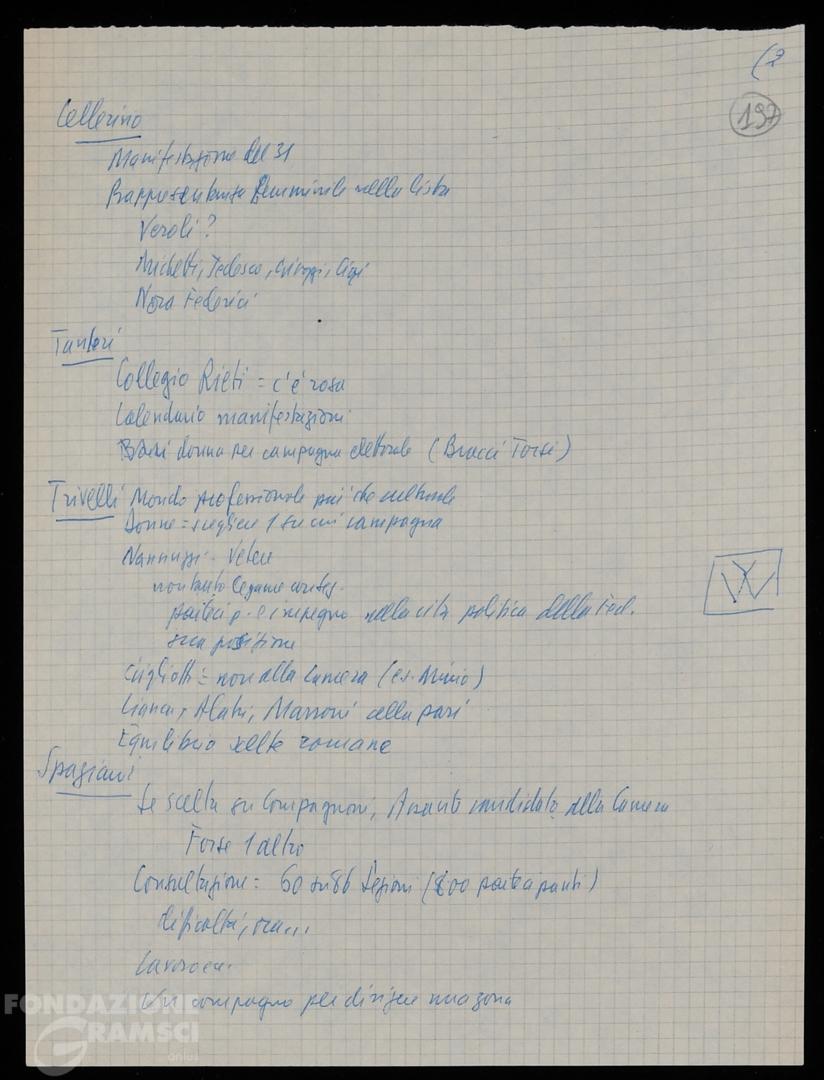 (2
197
Cellerino
Manifestazione del 31
Rappresentanza femminile nella lista
Veroli?
Michetti, Tedesco,
Nora Federici
Tanteri
Collegio Rieti = c'è rosa
Calendario manifestazioni
donna per campagna elettorale (Bracci Torsi)
Trivelli Mondo professionale più che culturale
Donne = scegliere 1 su cui campagna
Nannuzzi - Vetere
non tanto legame
partecip. e impegno nella vita politica della Fed.
sua posizione
Gigliotti = non alla Camera (es. Minio)
Alatri, Marroni alla pari
Equilibrio scelte romane
Spaziani
Se scelta su Compagnoni, Assante candidato alla Camera
Forse 1 altro
Consultazione = 60 su 86 sezioni (800 partecipanti)
difficoltà, ma...
Un compagno per dirigere una zona
W
FONDAZIONE
GRAMSCI
onlus